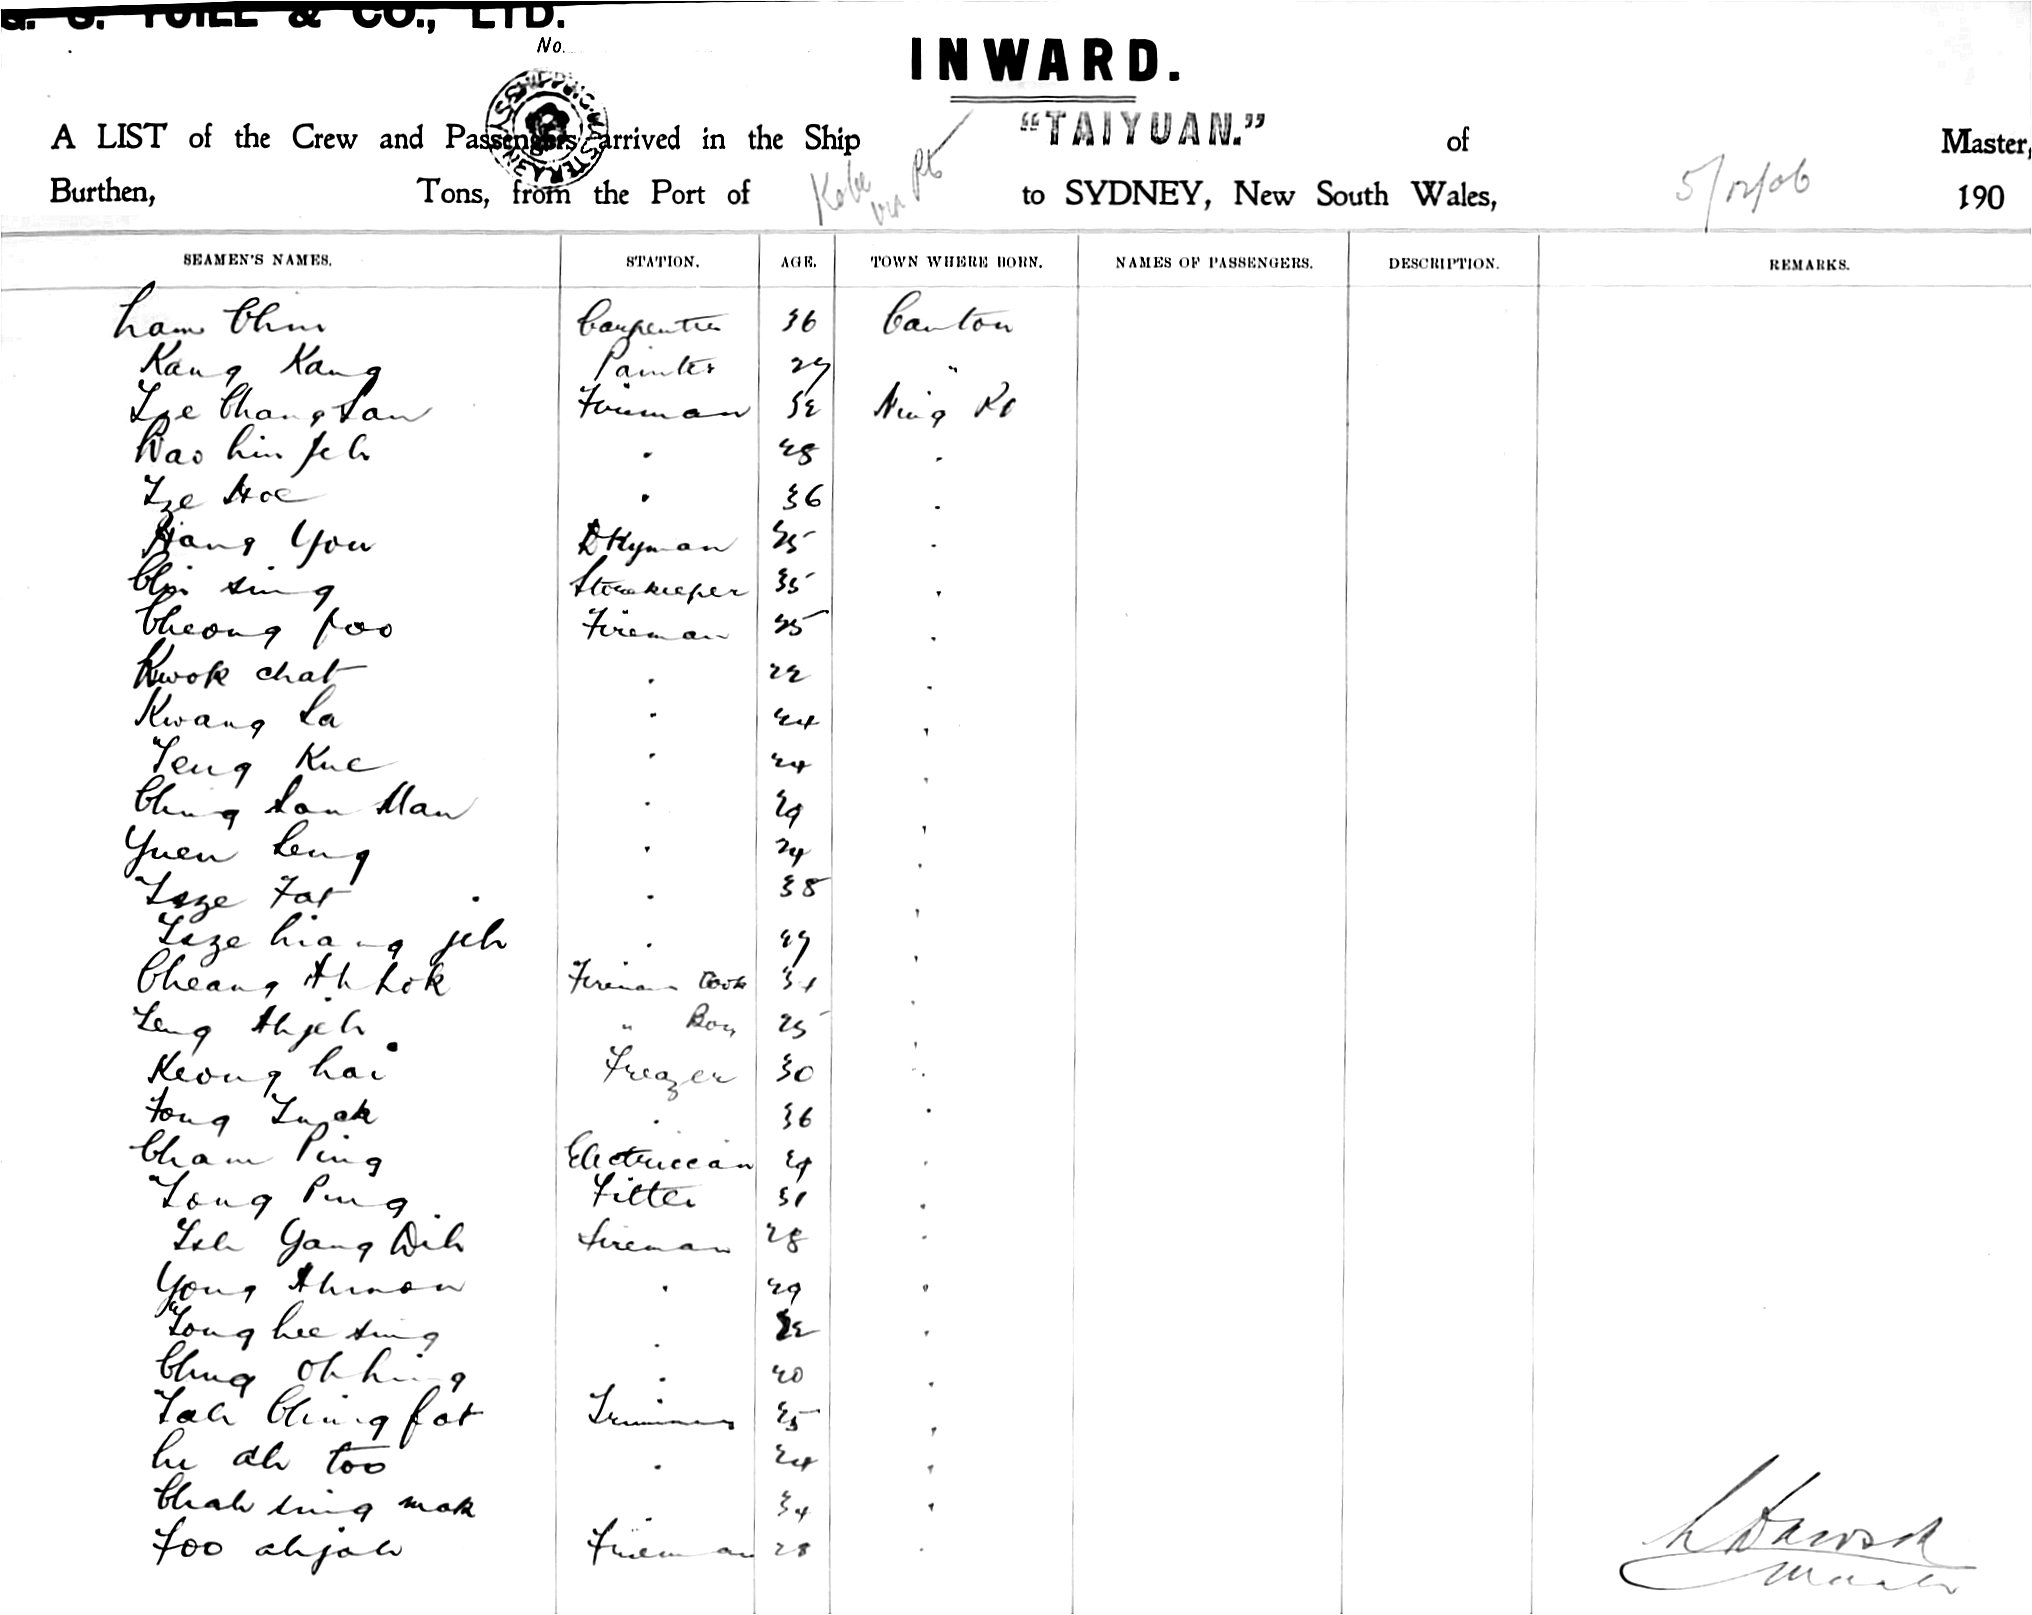 G. S. YUILL & CO., LTD.
No.
INWARD.
A LIST of the Crew and Passengers arrived in the Ship "TAIYUAN." of Master,
Burthen, Tons, from the Port of Kobe via Pts to SYDNEY, New South Wales, 5/12/06 190
SEAMEN'S NAMES. STATION. AGE. TOWN WHERE BORN. NAMES OF PASSENGERS. DESCRIPTION. REMARKS.
Lam Chun Carpenter 36 Canton
Kang Kang Painter 27 "
Tze Chang San Fireman 32 Ning Po
Wao Lin Jeh " 28 "
Tze Hoe " 36 "
Hang You Dkyman 25 "
Chin sing Storekeeper 35 "
Cheong foo Fireman 25 "
Kwok chat " 22 "
Kwang Sa " 24 "
Teng Kue " 24 "
Ching San Man " 29 "
Yuen Seng " 24 "
Tsze Fat " 38 "
Tsze Liang jeh " 27 "
Cheang Ah Lok Fireman Cook 31 "
Teng Ahjeh " Boy 25 "
Keong Lai Freazer 30 "
Fong Tuck " 36 "
Cham Ping Electriccian 29 "
Tong Ping Fitter 31 "
Tsh Gang Dih Fireman 28 "
Yong Ahmon " 29 "
Tong Lee sing " "
Ching Oh hing " 20 "
Tah Ching fat Trimmer 25 "
Li ah too " 24 "
Chah sing mok " 34 "
Foo ahjah Fireman 28 "
Master